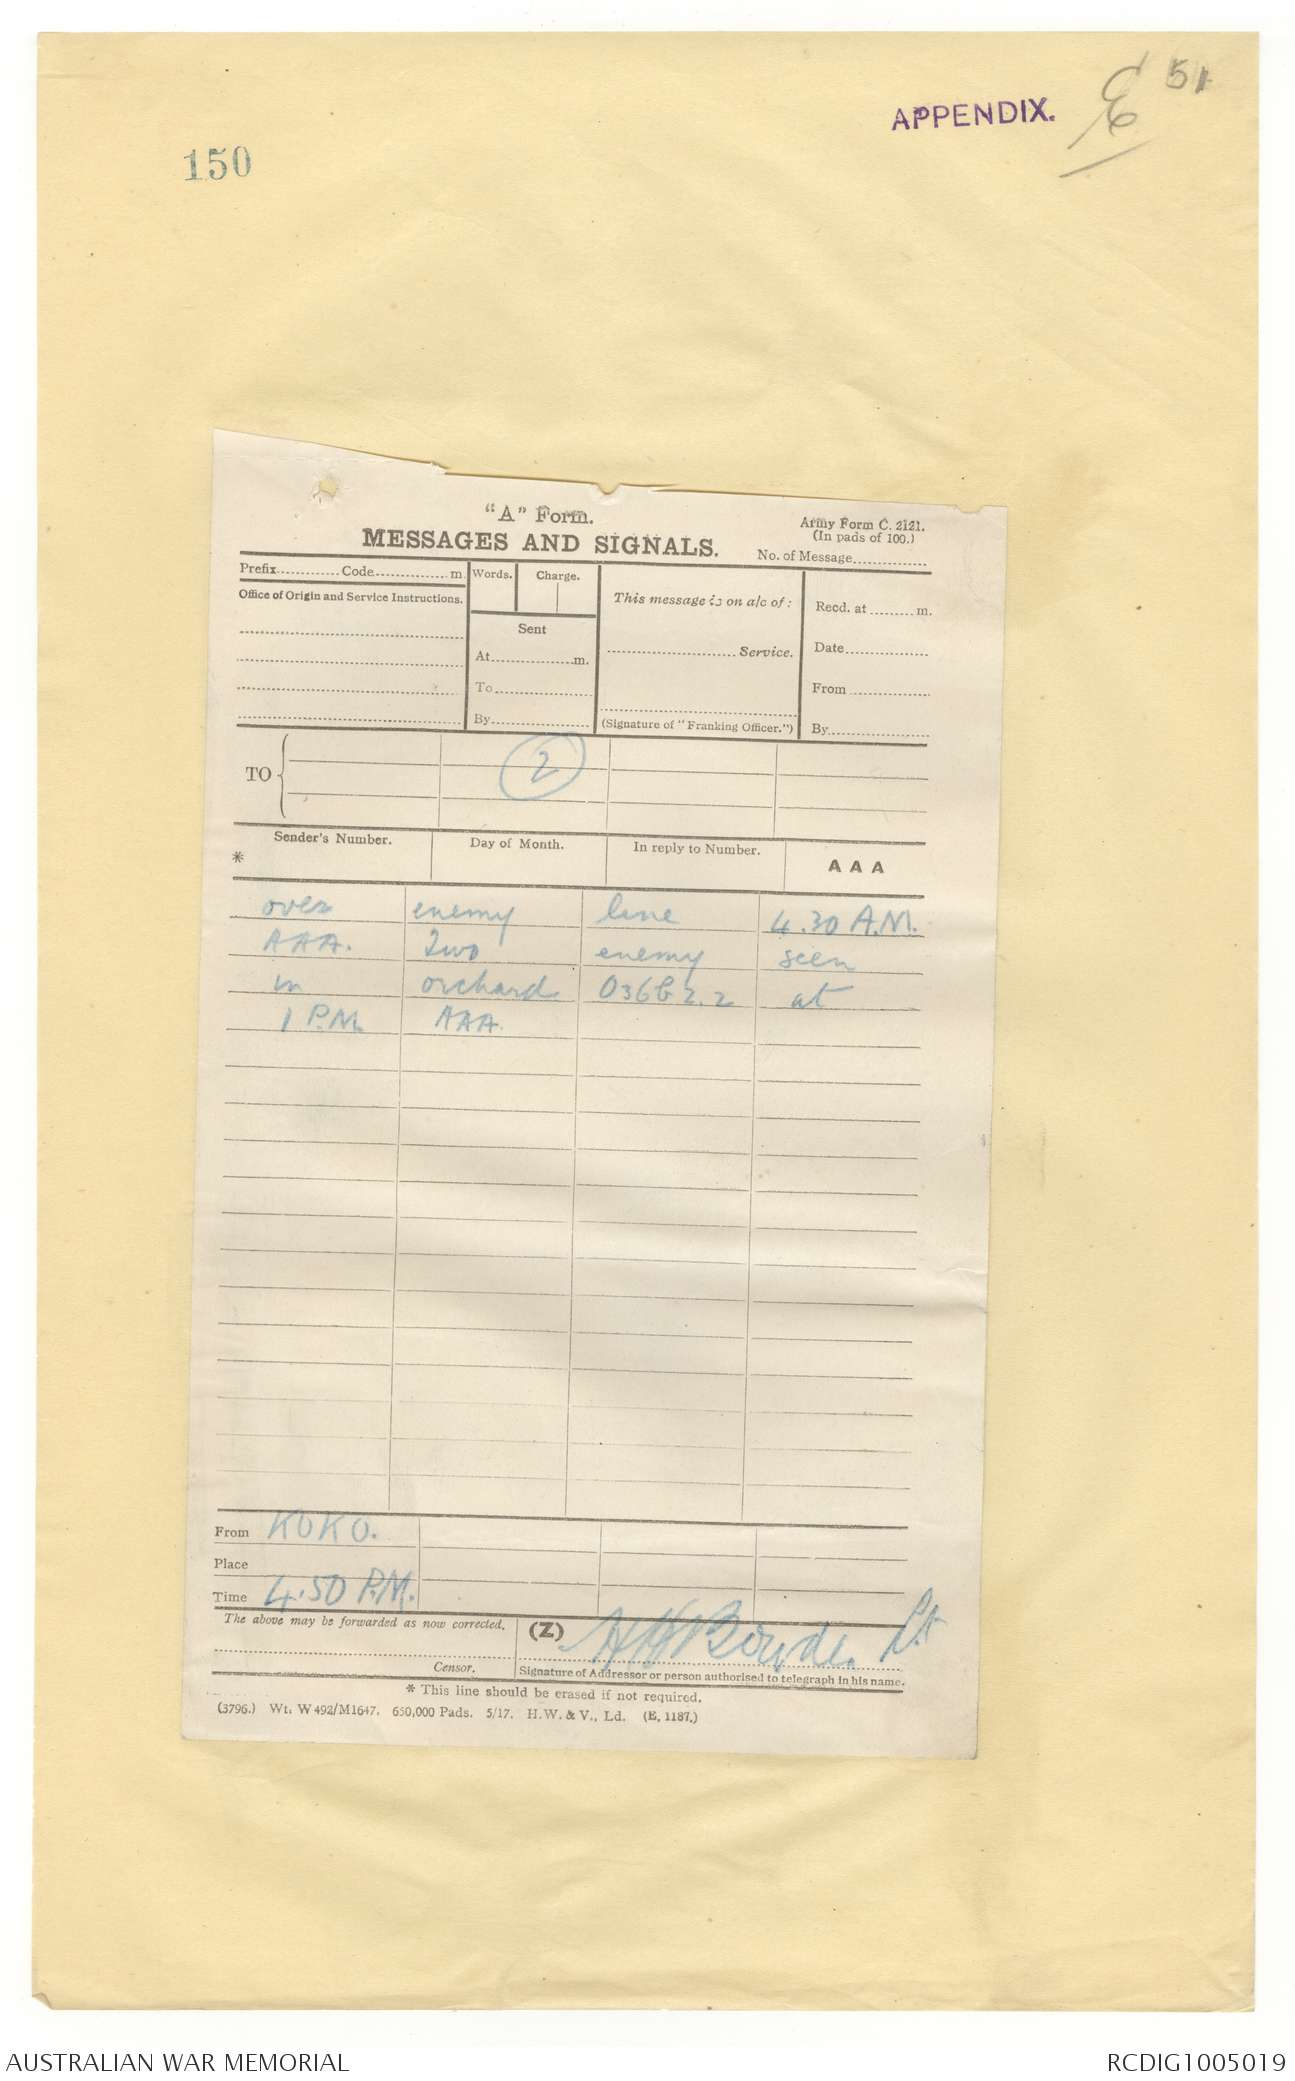 51
APPENDIX. E
150
"A" Form.
Army Form C. 2121.
(In pads of 100.)
MESSAGES AND SIGNALS.
No. of Message
Prefix Code m. Words. Charge.
This message is on a/c of:
Recd. at m.
Office of Origin and Service Instructions.
Sent
At m.
Service.
Date
To
From
By
(Signature of "Franking Officer.")
By
TO
2
Sender's Number. Day of Month. In reply to Number. AAA
*
over enemy line 4.30 A.M.
AAA. Two enemy seen
in orchard O36b2.2 at
1 P.M. AAA.
From KOKO.
Place
Time 4.50 P.M.
The above may be forwarded as now corrected. (Z) Lt
Censor. Signature of Addressor or person authorised to telegraph in his name.
* This line should be erased if not required.
(3796.) Wt. W 492/M1647. 650,000 Pads. 5/17. H.W. & V., Ld. (E. 1187.)
AUSTRALIAN WAR MEMORIAL
RCDIG1005019